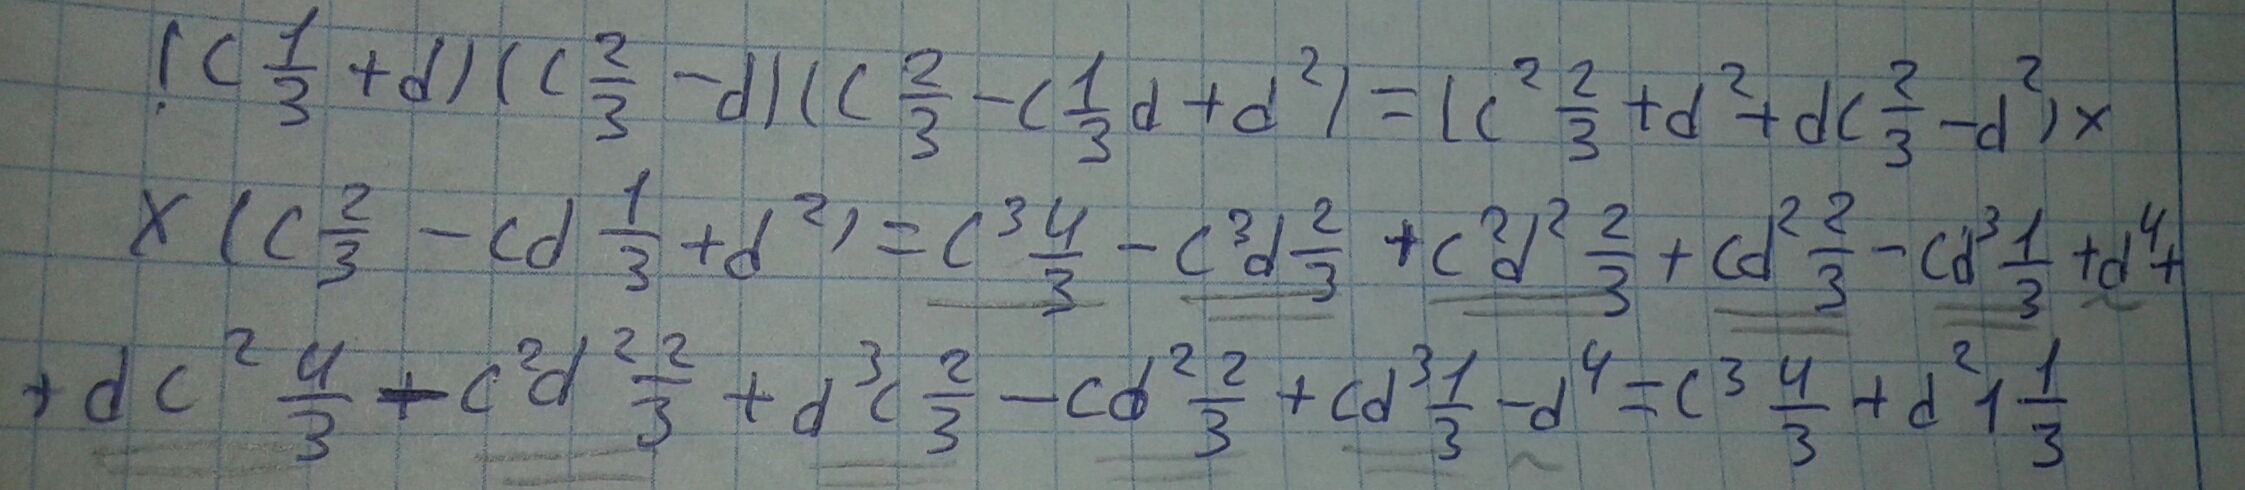 (c 1/3 + d)(c 2/3 - d)(c 2/3 - c 1/3 d + d²) = (c² 2/3 + d² + dc 2/3 - d²) ×
× (c 2/3 - cd 1/3 + d²) = c³ 4/3 - c³d 2/3 + c²d² 2/3 + cd² 2/3 - cd³ 1/3 + d⁴ +
+ dc² 4/3 + c²d² 2/3 + d³c 2/3 - cd² 2/3 + cd³ 1/3 - d⁴ = c³ 4/3 + d² 1 1/3